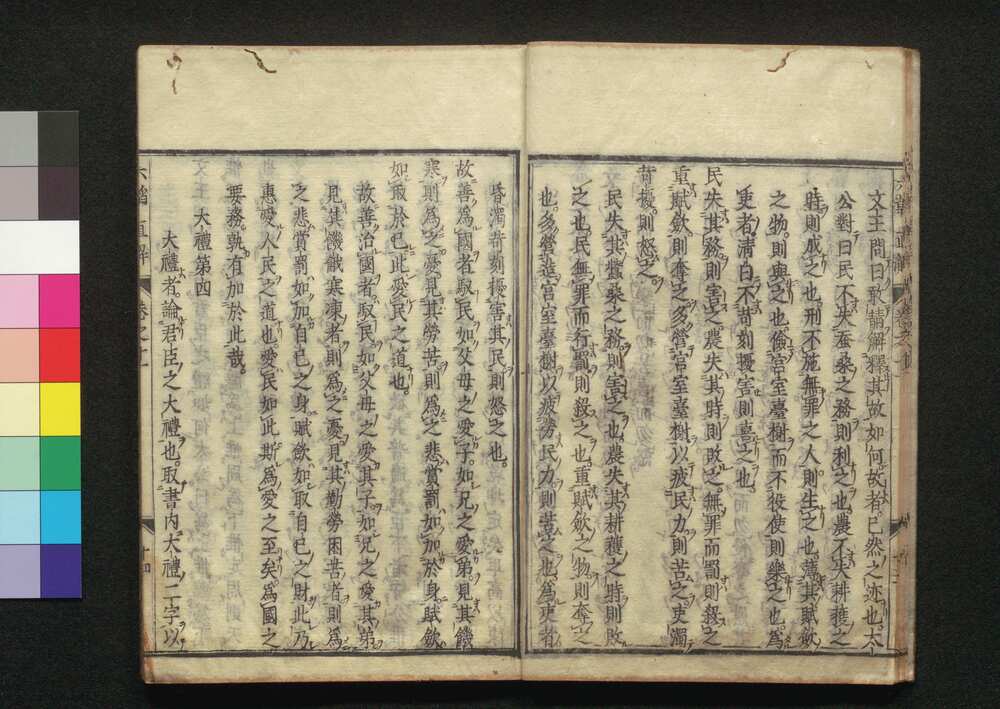 文王問曰敢請解釋其故如何故者已然之迹也太
公對曰民不失蚕桑之務則利之也農不失耕穫之
時則成之也刑不施無罪之人則生之也薄其賦歛
之物則與之也儉宮室臺榭而不役使則樂之也為
吏者清白不苛刻擾害則喜之也
民失其務則害之農失其時則敗之無罪而罰則殺之
重賦歛則奪之多營宮室臺榭以疲民力則苦之吏濁
苛擾則怒之
民失其蠶桑之務則害之也農失其耕穫之時則敗
之也民無罪而行罰則殺之也重賦歛之物則奪之
也多營造宮室臺榭以疲勞民力則苦之也為吏者
昏濁苛刻擾害其民則怒之也
故善為國者馭民如父母之愛子如兄之愛弟見其饑
寒則為之憂見其勞苦則為之悲賞罰如加於身賦歛
如取於已此愛民之道也
故善治國者馭民如父母之愛其子如兄之愛其弟
見其饑餓寒凍者則為之憂見其勤勞困苦者則為
之悲賞罰如加自已之身賦歛如取自已之財此乃
惠愛人民之道也愛民如此斯為愛之至矣為國之
要務孰有加於此哉
大禮第四
大禮者論君臣之大禮也取書內大禮二字以
六韜直解 卷之上 十四